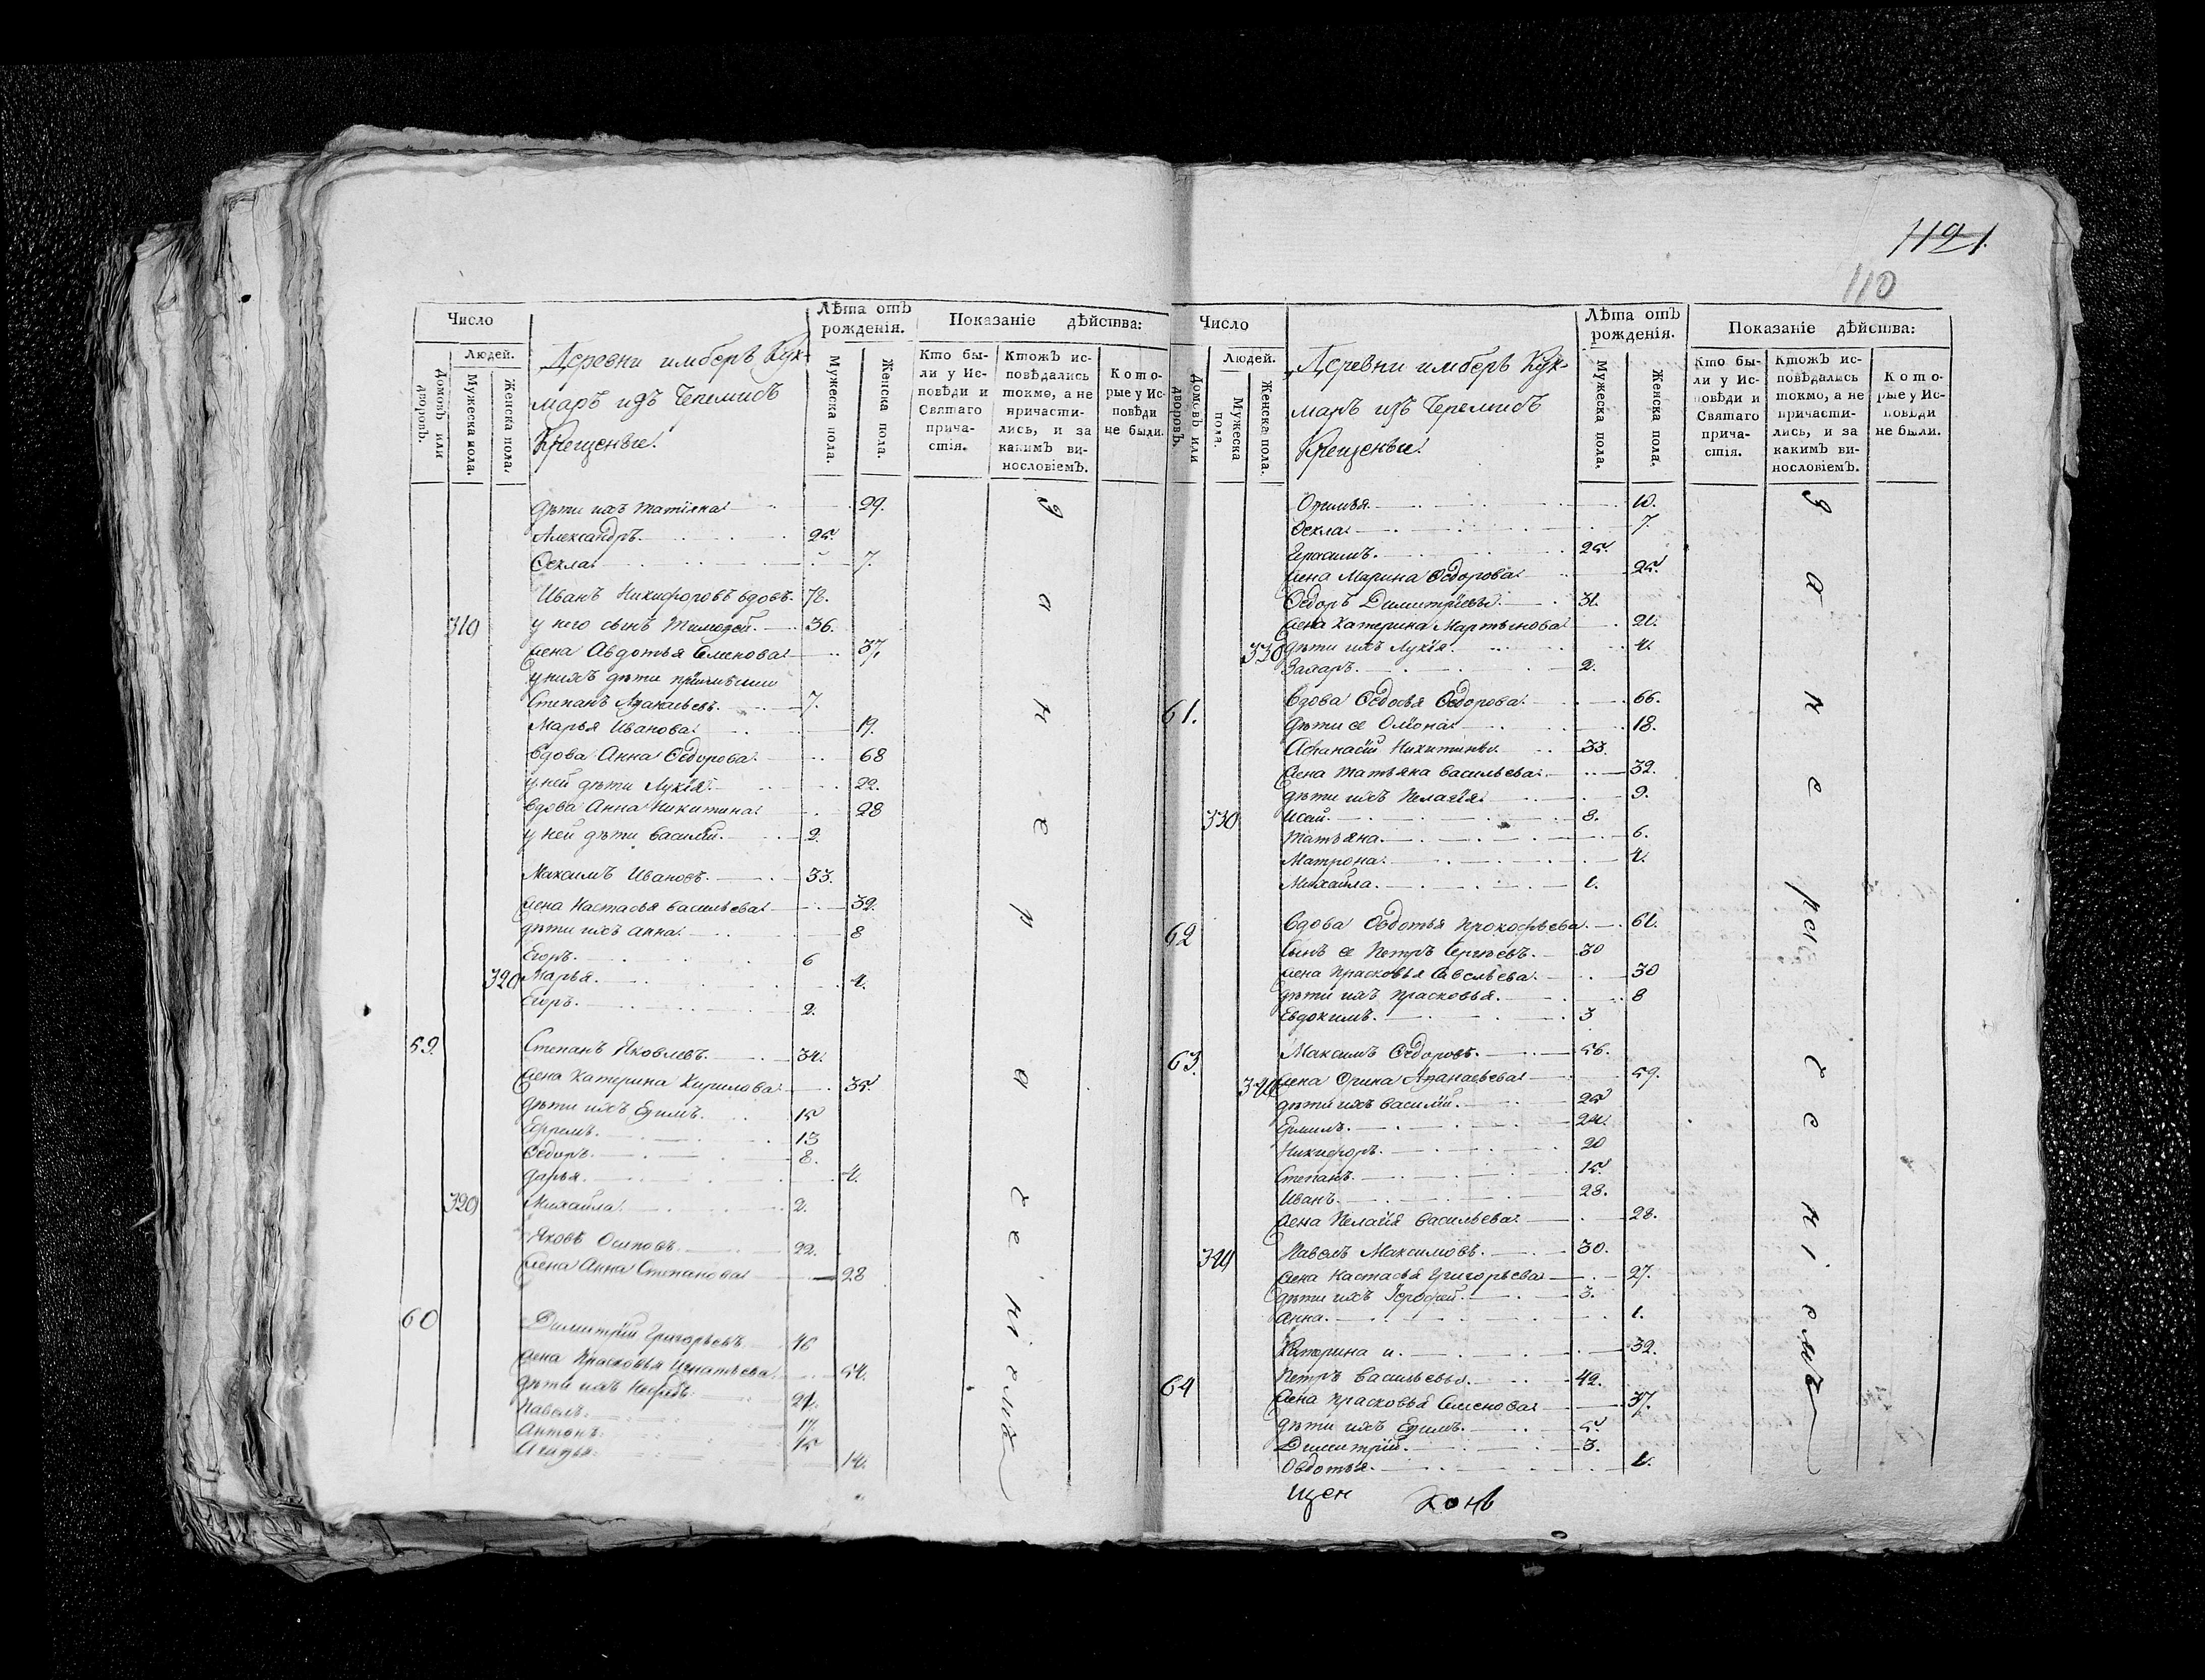 Число
Людей.
Домовъ или дворовъ.
Мужеска пола.
Женска пола.
Деревни имберъ Кук-
маръ изъ Черемисъ
Крещеные.
Лѣта отъ рожденія.
Мужеска пола.
Женска пола.
Показаніе дѣйства:
Кто бы-
ли у Ис-
повѣди и
Святаго
прича-
стія.
Ктожъ ис-
повѣдались
токмо, а не
причасти-
лись, и за
какимъ ви-
нословіемъ.
Кото-
рые у Ис-
повѣди
не были.
дѣти ихъ Татіяна 29.
Александръ 25.
Фекла 7.
Иванъ Никифоровъ вдовъ 72.
310 у него сынъ Тимофей 36.
жена Авдотья Семенова 37.
у нихъ дѣти
Степанъ 7.
Марья Иванова 19.
вдова Анна Федорова 68
у ней дѣти Лукія 22.
вдова Анна Никитина 28
у ней дѣти Василій 2.
Максимъ Ивановъ 33.
жена Настасья Васильева 32.
дѣти ихъ Анна 8
Егоръ 6
320 Марья 4.
Егоръ 2.
59. Степанъ Яковлевъ 34.
жена Катерина Кирилова 35.
дѣти ихъ Ефимъ 15
Ефремъ 13
Федоръ 8.
Дарья 4.
320 Михайла 2.
Яковъ Осиповъ 22.
жена Анна Степанова 28
60 Димитрій Григорьевъ 46
жена Прасковья Игнатьева 54.
дѣти ихъ
Павелъ 17
Антонъ 15
14.
за нерадѣніемъ
1121.
110
Число
Людей.
Домовъ или дворовъ.
Мужеска пола.
Женска пола.
Деревни имберъ Кук-
маръ изъ Черемисъ
Крещеные.
Лѣта отъ рожденія.
Мужеска пола.
Женска пола.
Показаніе дѣйства:
Кто бы-
ли у Ис-
повѣди и
Святаго
прича-
стія.
Ктожъ ис-
повѣдались
токмо, а не
причасти-
лись, и за
какимъ ви-
нословіемъ.
Кото-
рые у Ис-
повѣди
не были.
10.
Фекла 7.
Герасимъ 25.
жена Марина Федорова 25.
Федоръ Димитріевъ 31.
жена Катерина Мартынова 21.
330 дѣти ихъ Лукія 4.
Захаръ 2.
61. вдова Федосья Федорова 66.
дѣти ее 18.
Афанасій Никитинъ 33.
жена Татьяна Васильева 32.
дѣти ихъ Пелагія 9.
330 Исай 8.
Татьяна 6.
Матрона 4.
Михайла 1.
62 вдова Овдотья Прокофьева 61.
сынъ ее Петръ Сергѣевъ 30
жена Прасковья Савельева 30
дѣти ихъ Прасковья 8
Евдокимъ 3
63. Максимъ Федоровъ 56.
340 жена Орина 59.
дѣти ихъ Василій 25
24.
Никифоръ 20
Степанъ 15
Иванъ 28.
жена Пелагія Васильева 28.
340 Павелъ Максимовъ 30.
жена Настасья Григорьева 27.
дѣти ихъ 3.
Анна 1.
Катерина 32.
64 Петръ Васильевъ 42.
жена Прасковья Семенова 37.
дѣти ихъ Ефимъ 5.
Димитрій 3.
Овдотья 1.
за нерадѣніемъ
щен